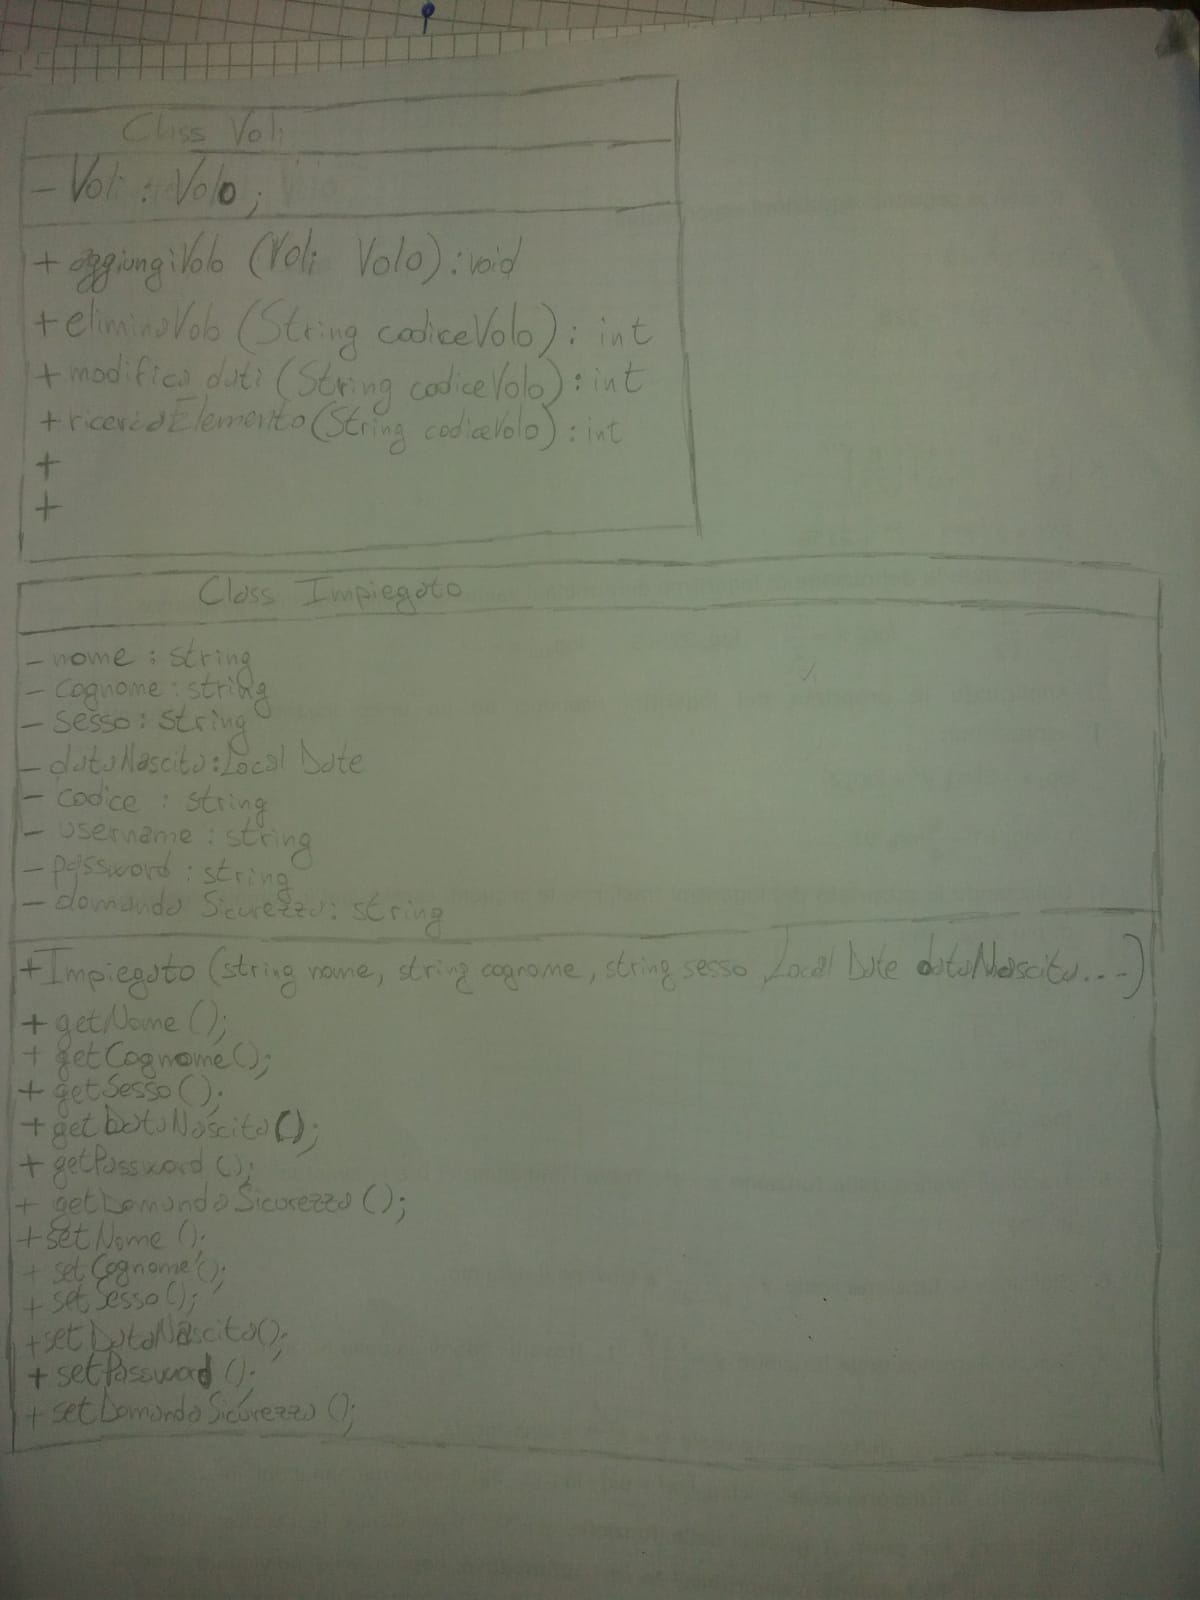 Class Voli
- Voli : Volo;
+ aggiungiVolo (Voli Volo): void
+ eliminaVolo (String codiceVolo): int
+ modifica dati (String codiceVolo): int
+ ricercaElemento (String codiceVolo): int
+
+
Class Impiegato
- nome : string
- cognome : string
- sesso : string
- dataNascita : Local Date
- codice : string
- username : string
- password : string
- domanda Sicurezza : string
+ Impiegato (string nome, string cognome, string sesso, Local Date dataNascita...)
+ getNome ();
+ getCognome ();
+ getSesso ();
+ getDataNascita ();
+ getPassword ();
+ getDomandaSicurezza ();
+ setNome ();
+ setCognome ();
+ setSesso ();
+ setDataNascita ();
+ setPassword ();
+ setDomandaSicurezza ();